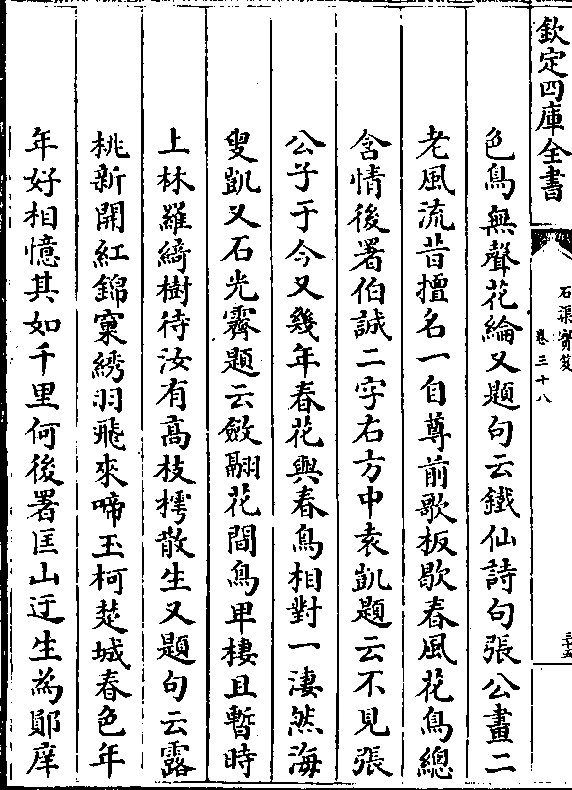 欽定四庫全書
石渠寳笈
卷三十八
三十五
色鳥無聲花綸又題句云鐵仙詩句張公畫二
老風流昔擅名一自尊前歌板歇春風花鳥總
含情後署伯誠二字右方中袁凱題云不見張
公子于今又幾年春花與春鳥相對一淒然海
叟凱又石光霽題云斂翮花間鳥卑棲且暫時
上林羅綺樹待汝有髙枝樗散生又題句云露
桃新開紅錦窠綉羽飛來啼玉柯楚城春色年
年好相憶其如千里何後署匡山迂生為鄖庠